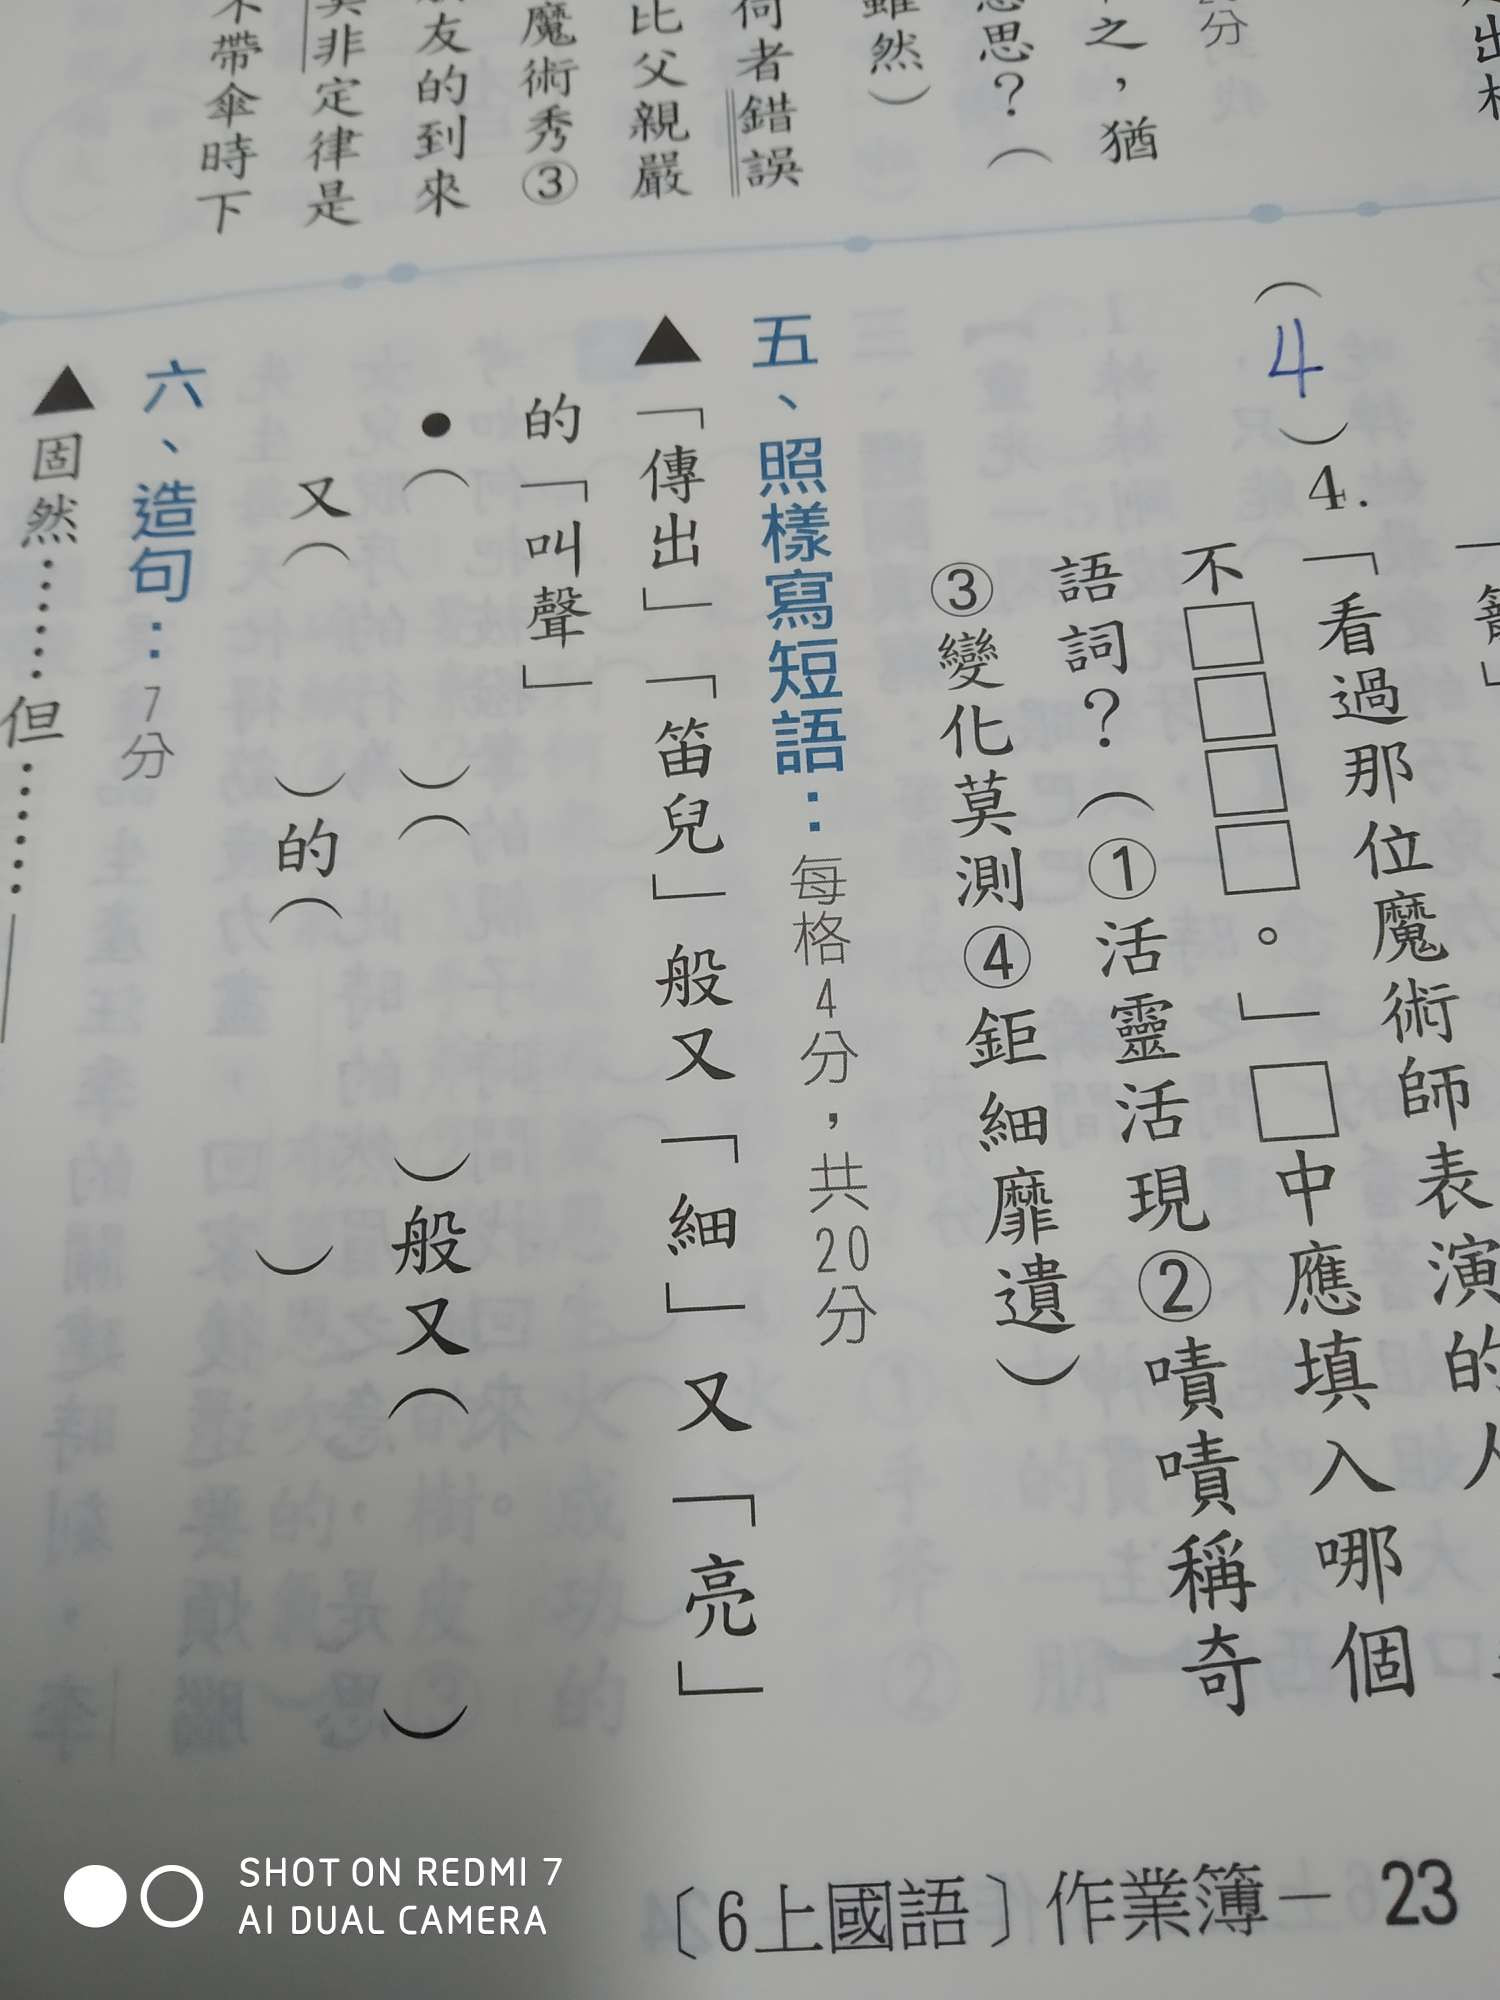 之，猶
思？（
雖然）
者錯誤
比父親嚴
魔術秀③
友的到來
非定律是
帶傘時下
（4）4.「看過那位魔術師表演的
不□□□□。」□中應填入哪個
語詞？（①活靈活現②嘖嘖稱奇
③變化莫測④鉅細靡遺）
五、照樣寫短語：每格4分，共20分
▲「傳出」「笛兒」般又「細」又「亮」
的「叫聲」
●（ ）（ ）般又（ ）
又（ ）的（ ）
六、造句：7分
▲固然……但……
〔6上國語〕作業簿－23
SHOT ON REDMI 7
AI DUAL CAMERA